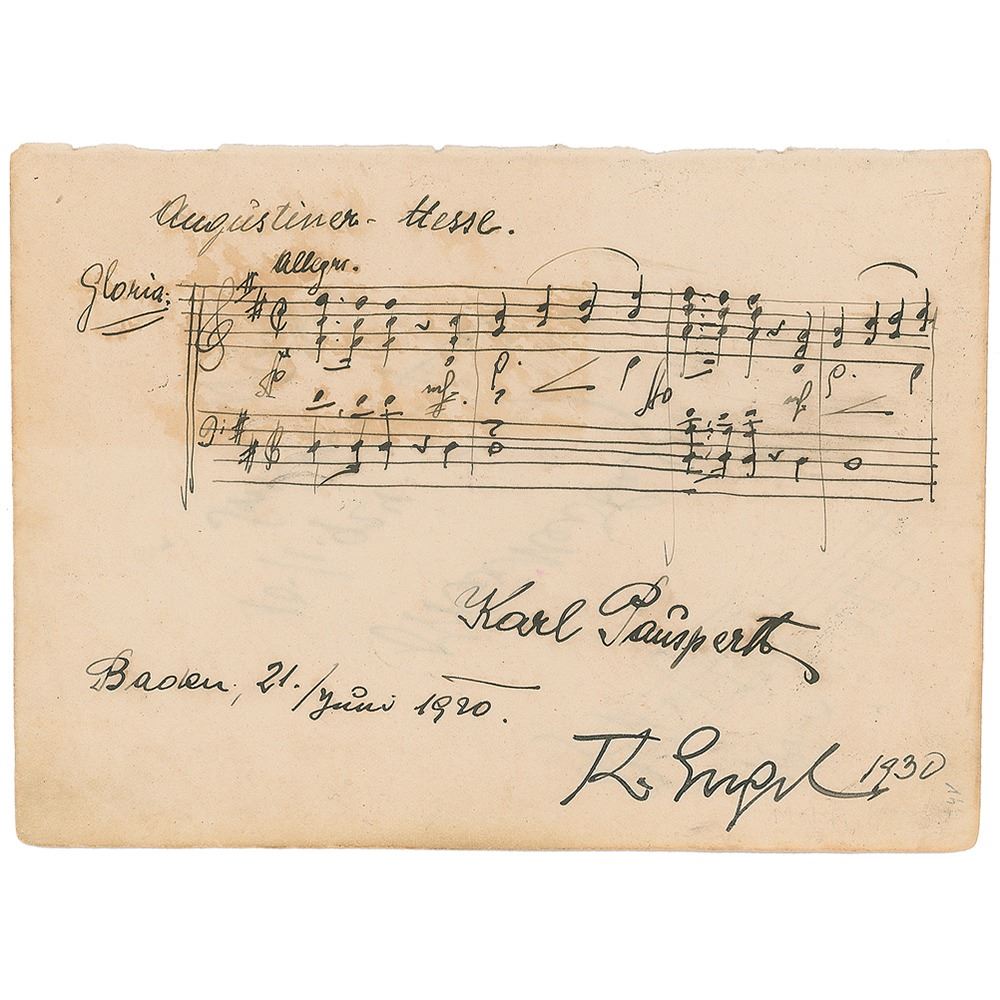 Augustiner-Messe.
Allegro.
Gloria:
ff mf. ff mf
Karl Pausperth
Baden, 21. Juni 1920.
Engel 1930